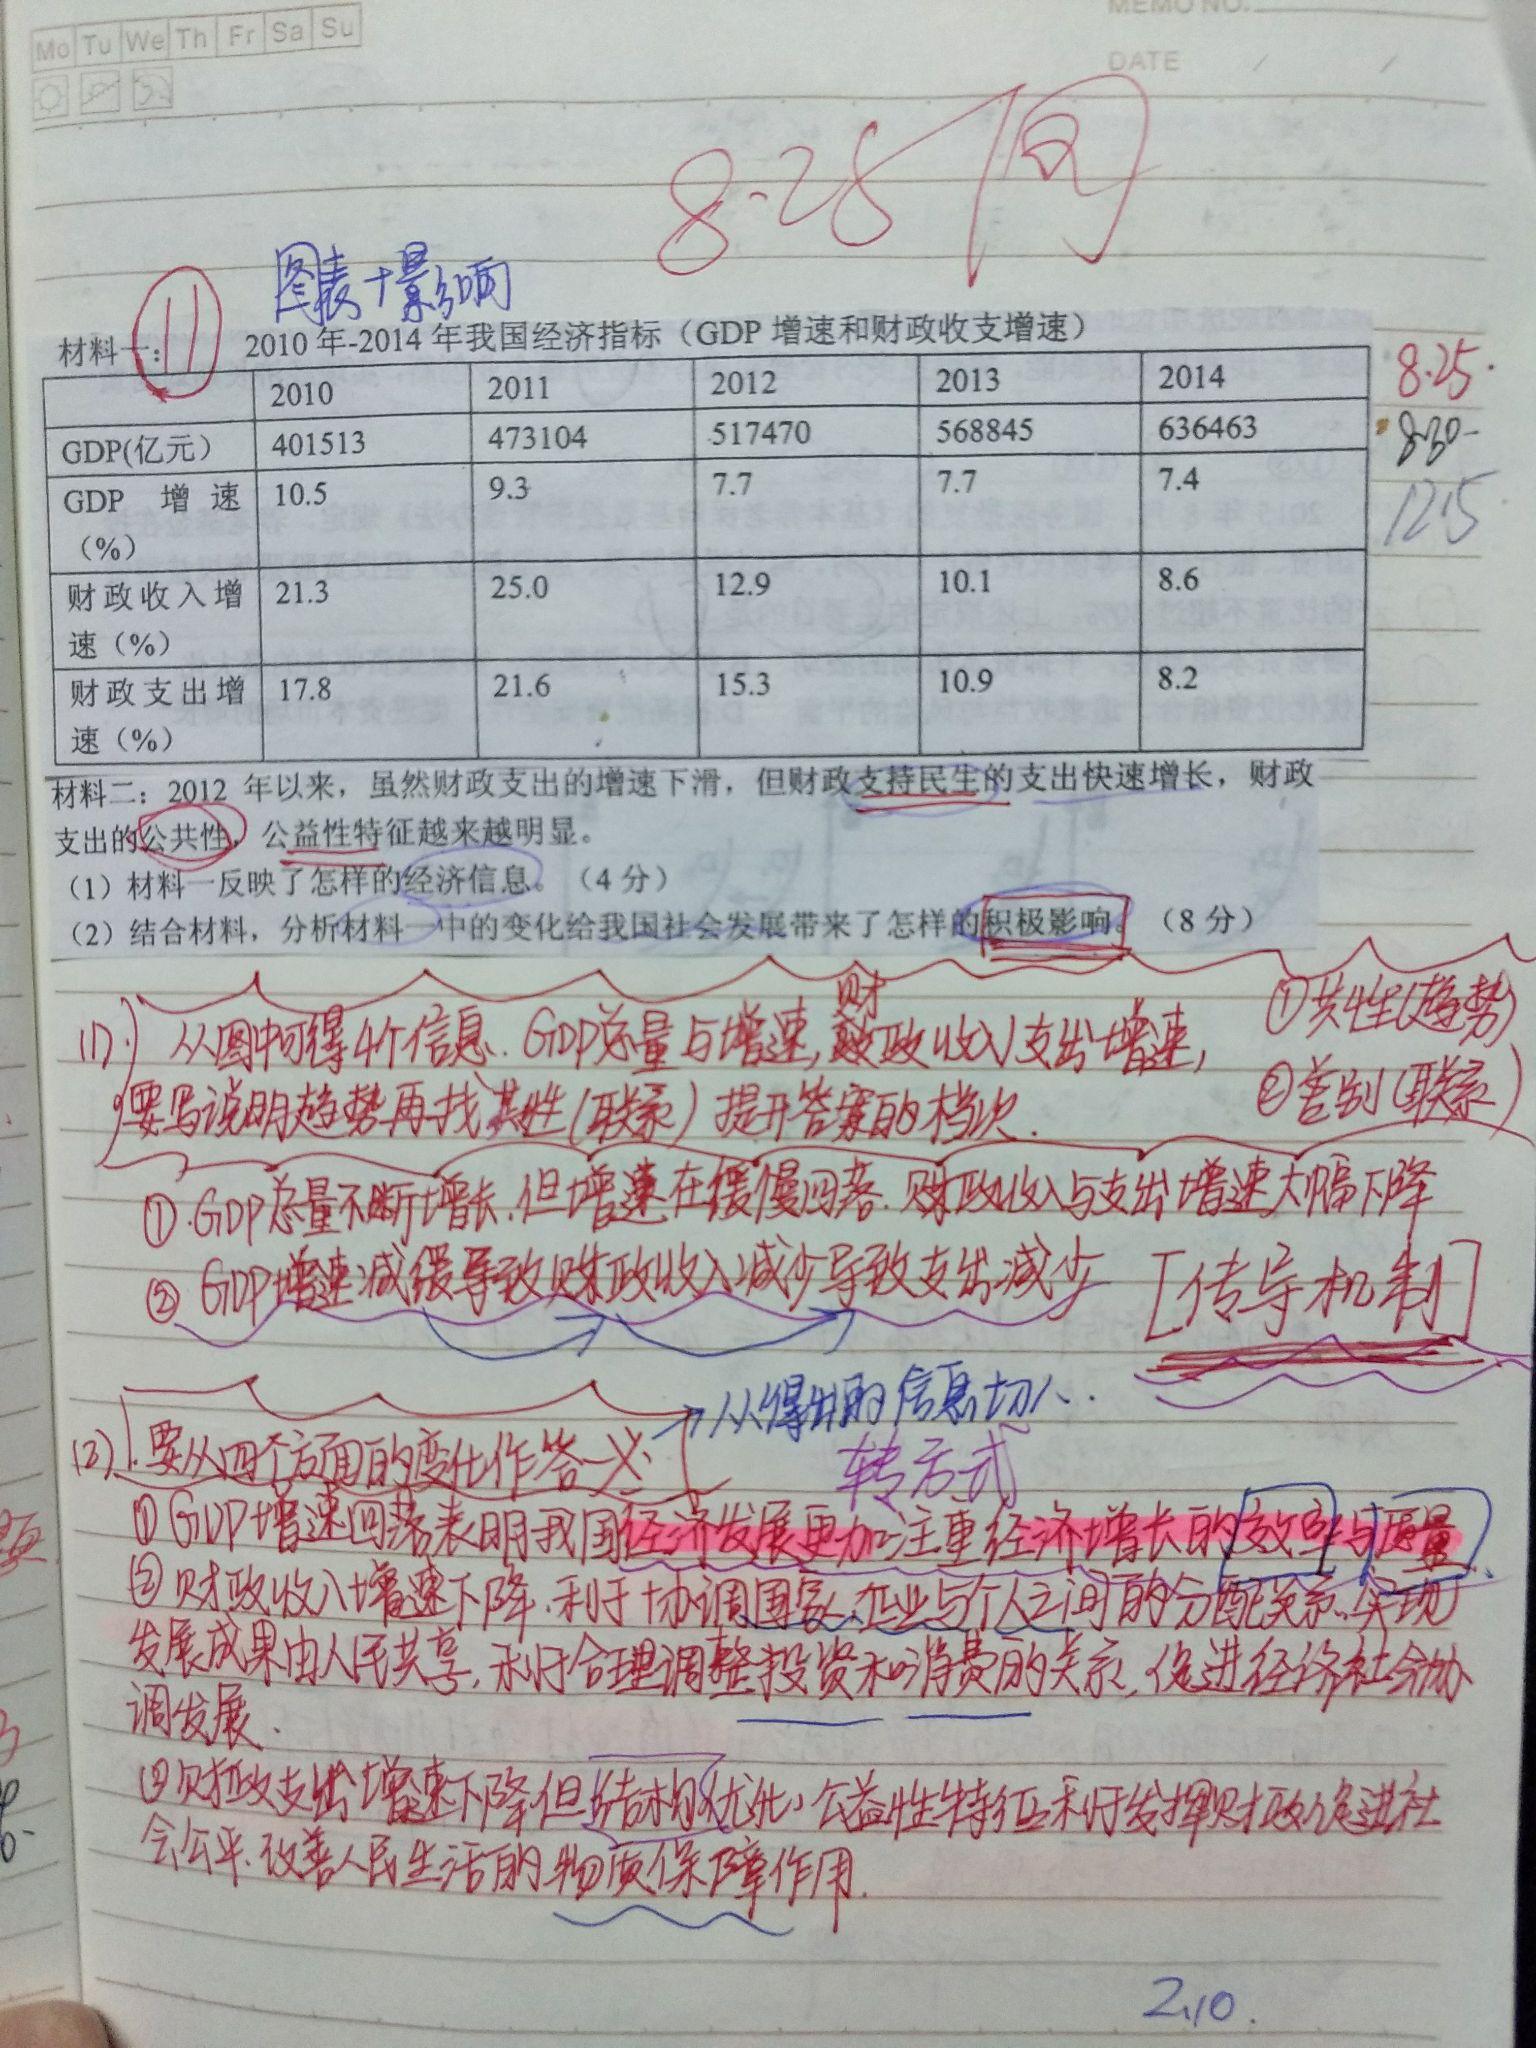 MEMO NO.
Mo Tu We Th Fr Sa Su
DATE / /
8.28
图表+影响
11
材料一: 2010年-2014年我国经济指标（GDP增速和财政收支增速）
2010 2011 2012 2013 2014
GDP(亿元） 401513 473104 517470 568845 636463
GDP 增速（%） 10.5 9.3 7.7 7.7 7.4
财政收入增速（%） 21.3 25.0 12.9 10.1 8.6
财政支出增速（%） 17.8 21.6 15.3 10.9 8.2
8.25.
8.30-
12.15
材料二：2012 年以来，虽然财政支出的增速下滑，但财政支持民生的支出快速增长，财政
支出的公共性，公益性特征越来越明显。
（1）材料一反映了怎样的经济信息。（4分）
（2）结合材料，分析材料一中的变化给我国社会发展带来了怎样的积极影响。（8分）
(1). 从图中可得4个信息. GDP总量与增速, 财政收入支出增速,
要写说明趋势再找共性(联系) 提升答案的档次.
①共性(趋势)
②差别(联系)
①.GDP总量不断增长,但增速在缓慢回落.财政收入与支出增速大幅下降
② GDP增速减缓导致财政收入减少导致支出减少 [传导机制]
→从得出的信息切入.
(2) 要从四个方面的变化作答
转方式
① GDP增速回落表明我国经济发展更加注重经济增长的效率与质量.
② 财政收入增速下降,利于协调国家、企业与个人之间的分配关系.实现
发展成果由人民共享,利于合理调整投资和消费的关系,促进经济社会协
调发展.
③财政支出增速下降,但结构优化,公益性特征利于发挥财政促进社
会公平.改善人民生活的物质保障作用.
2.10.